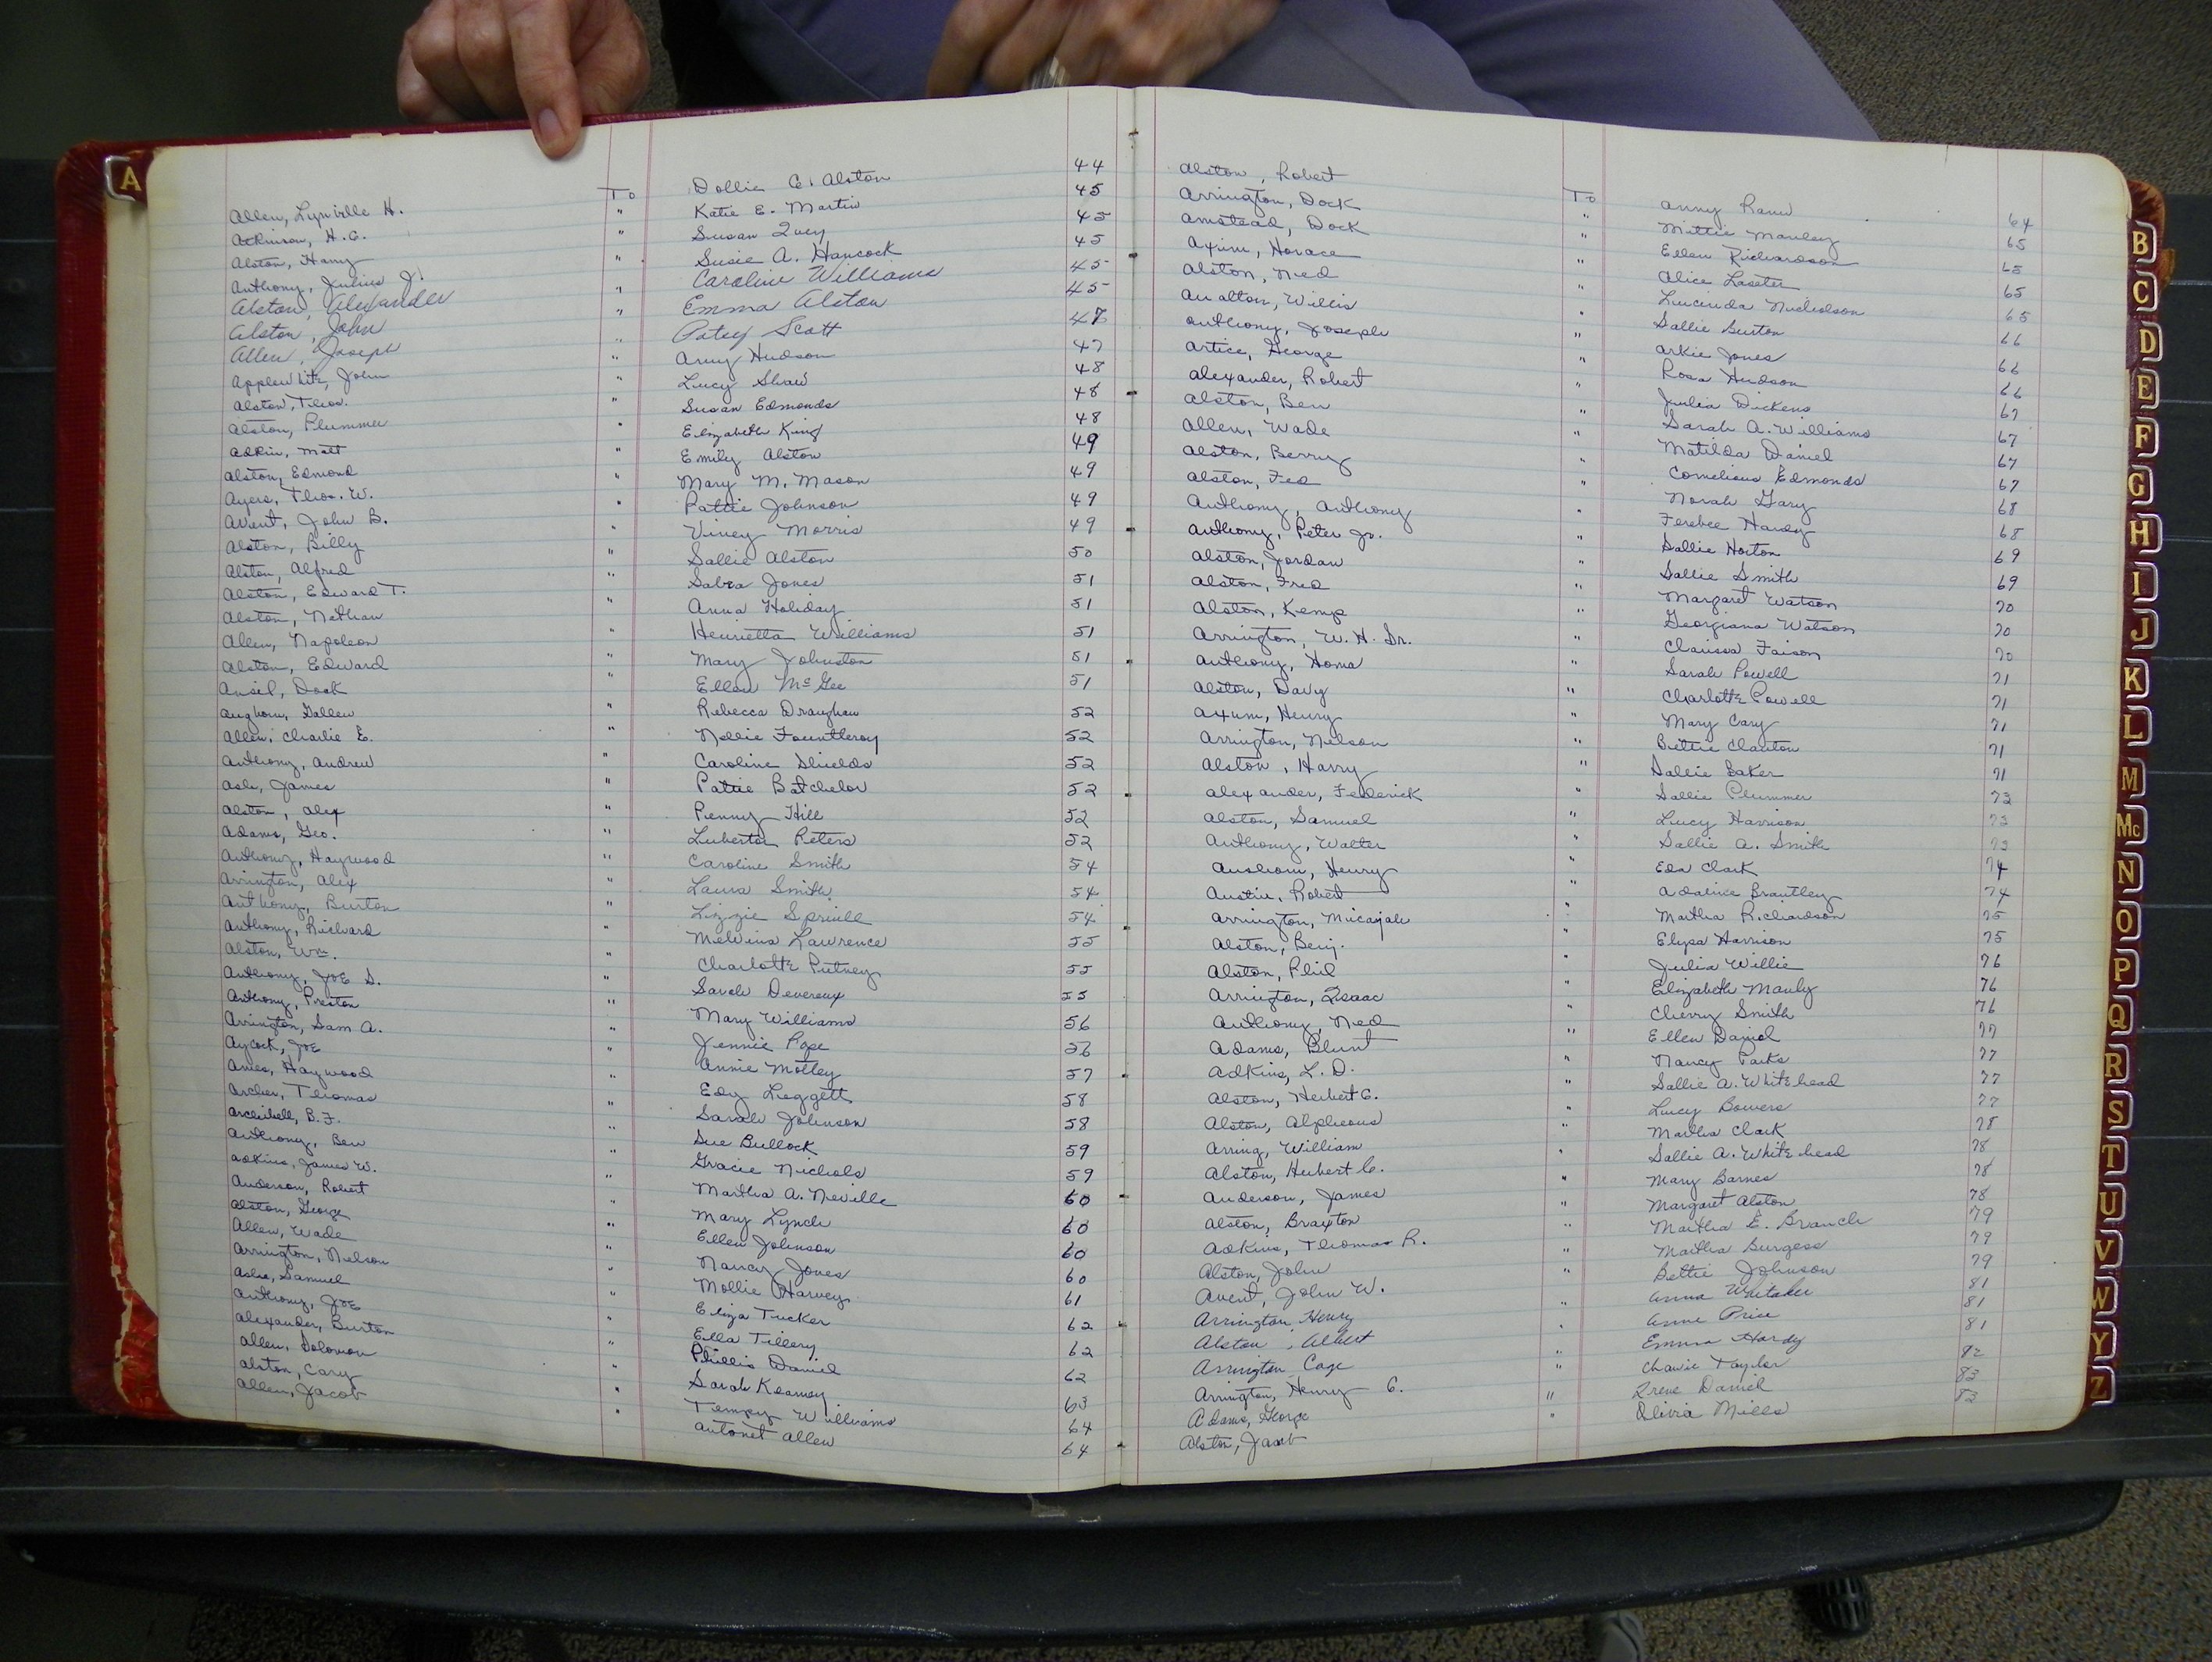 A
Allen, Lynville H. To Dollie C. Alston 44
Atkinson, H.C. " Katie E. Martin 45
Alston, Harry " Susan Ivey 45
Anthony, Julius J. " Susie A. Hancock 45
Alston, Alexander " Caroline Williams 45
Alston, John " Emma Alston 45
Allen, Joseph " Patsy Scott 47
Applewhite, John " Amy Hudson 47
Alston, Theo. " Lucy Shaw 48
Alston, Plummer " Susan Edmonds 48
Adkin, Matt " Elizabeth King 48
Alston, Edmond " Emily Alston 49
Ayers, Thos. W. " Mary M. Mason 49
Avent, John B. " Pattie Johnson 49
Alston, Billy " Viney Morris 49
Alston, Alfred " Sallie Alston 50
Alston, Edward T. " Sabra Jones 51
Alston, Nathan " Anna Holiday 51
Allen, Napoleon " Henrietta Williams 51
Alston, Edward " Mary Johnston 51
Ansil, Dock " Ellen McGee 51
Anghom, Gallen " Rebecca Draughan 52
Allen, Charlie E. " Nellie Fountleroy 52
Anthony, Andrew " Caroline Shields 52
Ash, James " Pattie Batchelor 52
Alston, Alex " Penny Hill 52
Adams, Geo. " Luberta Peters 52
Anthony, Haywood " Caroline Smith 54
Arrington, Alex " Laura Smith 54
Anthony, Burton " Lizzie Spruill 54
Anthony, Richard " Melvina Lawrence 55
Alston, Wm. " Charlotte Putney 55
Anthony, Joe S. " Sarah Devereux 55
Anthony, Preston " Mary Williams 56
Arrington, Sam A. " Jennie Pope 56
Aycock, Joe " Annie Motley 57
Ames, Haywood " Edy Leggett 58
Archer, Thomas " Sarah Johnson 58
Archibell, B.F. " Sue Bullock 59
Anthony, Ben " Gracie Nichols 59
Adkins, James W. " Martha A. Neville 60
Anderson, Robert " Mary Lynch 60
Alston, George " Ellen Johnson 60
Allen, Wade " Nancy Jones 60
Arrington, Nelson " Mollie Harvey 61
Ashe, Samuel " Eliza Tucker 62
Anthony, Joe " Ella Tillery 62
Alexander, Burton " Phillis Daniel 62
Allen, Solomon " Sarah Kearney 63
Alston, Cary " Tempy Williams 64
Allen, Jacob " Antonet Allen 64
Alston, Robert To Anny Rann 64
Arrington, Dock " Mittie Manley 65
Amstead, Dock " Ellen Richardson 65
Axim, Horace " Alice Lassiter 65
Alston, Ned " Lucinda Nicholson 65
Aualton, Willis " Sallie Burton 66
Anthony, Joseph " Arkie Jones 66
Artice, George " Rosa Hudson 66
Alexander, Robert " Julia Dickens 67
Alston, Ben " Sarah A. Williams 67
Allen, Wade " Matilda Daniel 67
Alston, Berry " Cornelious Edmonds 67
Alston, Fed " Norah Gary 68
Anthony, Anthony " Ferebee Hardy 68
Anthony, Peter Jr. " Sallie Horton 69
Alston, Jordan " Sallie Smith 69
Alston, Fred " Margaret Watson 70
Alston, Kemp " Georgiana Watson 70
Arrington, W. H. Sr. " Clarissa Faison 70
Anthony, Homa " Sarah Powell 71
Alston, Davy " Charlotte Powell 71
Axum, Henry " Mary Cary 71
Arrington, Nelson " Bettie Clanton 71
Alston, Harry " Sallie Baker 71
Alexander, Federick " Sallie Plummer 73
Alston, Samuel " Lucy Harrison 73
Anthony, Walter " Sallie A. Smith 73
Ausbom, Henry " Eda Clark 74
Austin, Robert " Adaline Brantley 74
Arrington, Micajah " Martha Richardson 75
Alston, Benj. " Elysa Harrison 75
Alston, Phil " Julia Willie 76
Arrington, Isaac " Elizabeth Manly 76
Anthony, Ned " Cherry Smith 76
Adams, Blunt " Ellen Daniel 77
Adkins, L. D. " Nancy Parks 77
Alston, Herbert C. " Sallie A. Whitehead 77
Alston, Alpheous " Lucy Bowers 77
Arring, William " Martha Clark 78
Alston, Hubert C. " Sallie A. Whitehead 78
Anderson, James " Mary Barnes 78
Alston, Braxton " Margaret Alston 78
Adkins, Thomas R. " Martha E. Branch 79
Alston, John " Martha Burgess 79
Avent, John W. " Bettie Johnson 79
Arrington Henry " Anna Whitaker 81
Alston, Albert " Anne Price 81
Arrington Cage " Emma Hardy 81
Arrington, Henry C. " Chanie Taylor 82
Adams, George " Irene Daniel 83
Alston, Jacob " Olivia Mills 83
B
C
D
E
F
G
H
I
J
K
L
M
Mc
N
O
P
Q
R
S
T
U
V
W
Y
Z